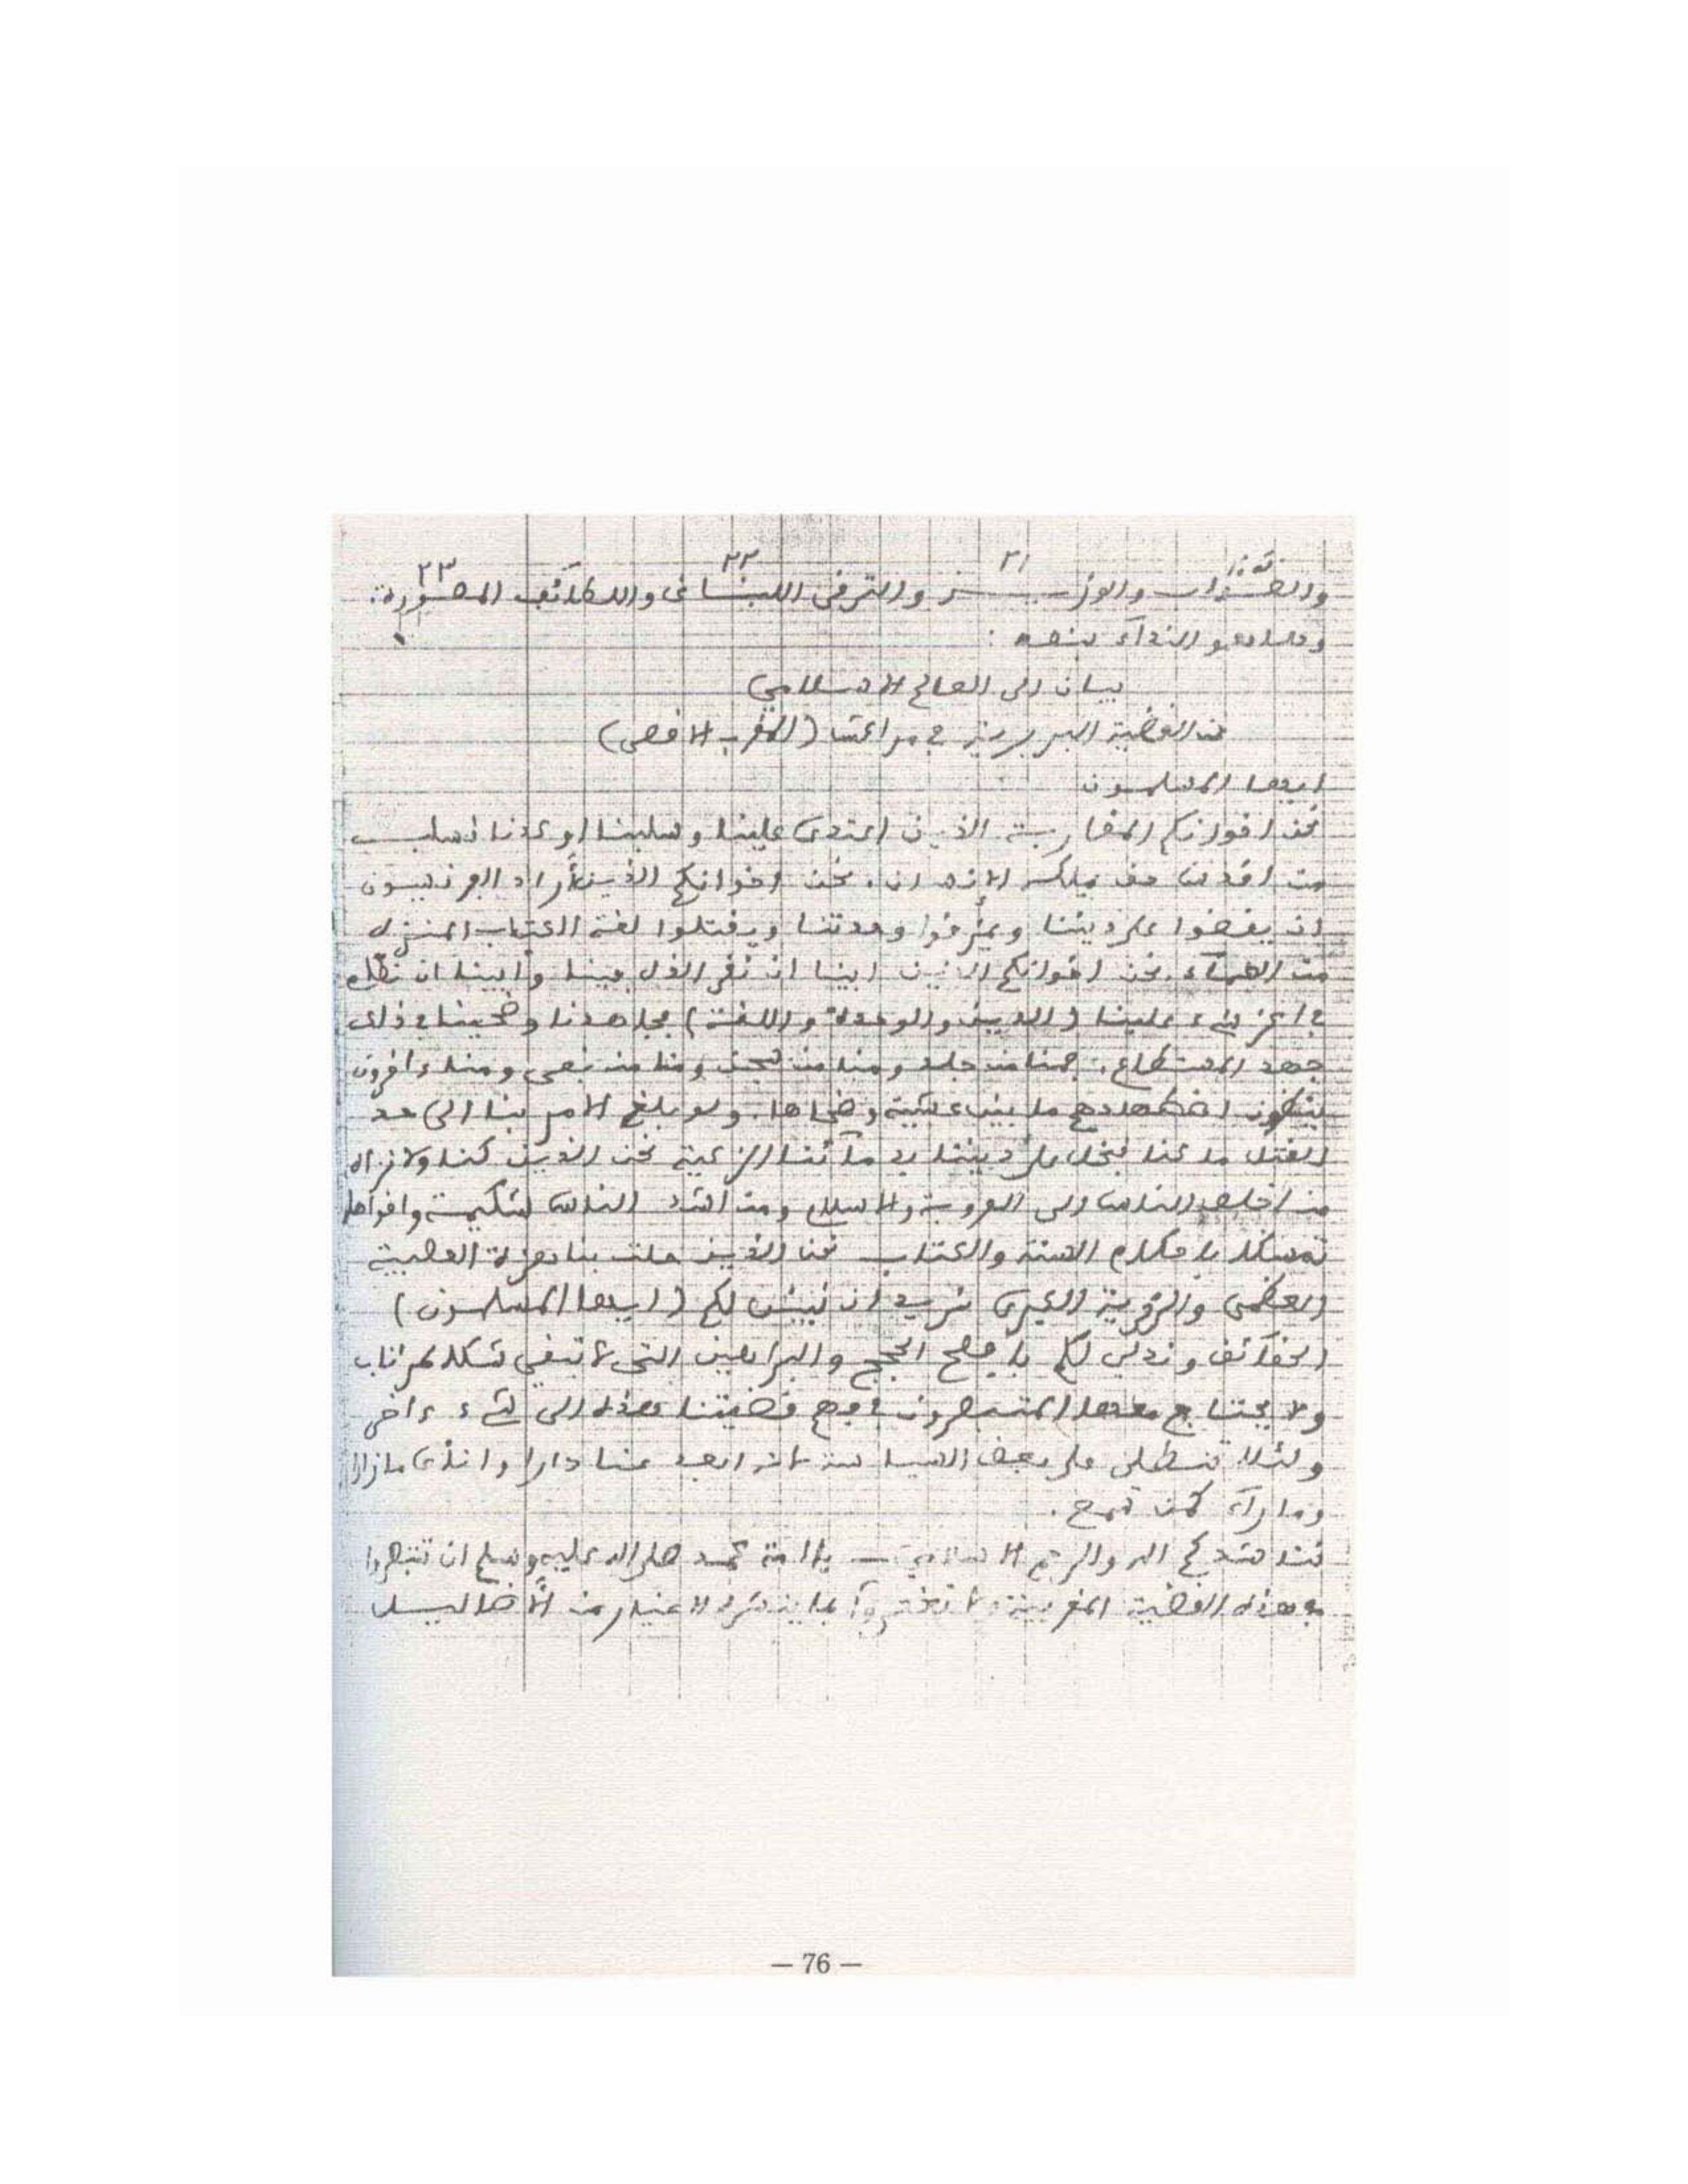 ٢١ ٢٢ ٢٣
والوزير والترقي اللبناني واللطائف المصورة.
وها هو النداء بنصه :
بيان إلى العالم الاسلامي
عن القضية البربرية في مراكش (المغرب الاقصى)
ايها المسلمون
نحن اخوانكم المغاربة الذين اعتدى علينا وسلبنا او كدنا نسلب
من اقدس حق يملكه الانسان. نحن اخوانكم الذين أراد الفرنسيون
ان يقضوا على ديننا ويمزقوا وحدتنا ويقتلوا لغة الكتاب المنزل
من السماء. نحن اخوانكم الذين ابينا ان نقر الذل فينا وأبينا ان
في اعز شيء علينا (الدين والوحدة واللغة) فجاهدنا وضحينا في ذلك
جهد المستطاع. فمنا من جلد ومنا من سجن ومنا من نفي ومنا ءاخرون
ينتظرون اضطهادهم ما بين عشية وضحاها. ولو بلغ الامر بنا الى حد
القتل ما كنا نبخل على ديننا بدمائنا الزكية نحن الذين كنا ولا نزال
من اخلص الناس الى العروبة والاسلام ومن اشد الناس شكيمة واقواها
تمسكا باحكام السنة والكتاب نحن الذين حلت بنا هذه المصيبة
العظمى والرزية الكبرى نريد ان نبين لكم (ايها المسلمون)
الحقائق وندلي لكم بأوضح الحجج والبراهين التي لا تبقي شكا لمرتاب
ولا يحتاج معها المتبصرون في فهم قضيتنا هذه الى شيء ءاخر
ولئلا تنطلي على بعض السياسة ابعد منا دارا واندى مازارا
وما راء كمن سمع.
نناشدكم الله والرحم الاسلامي يا امة محمد صلى الله عليه وسلم ان تتبصروا
بهذه القضية المغربية ولا تغتروا بما ينشره الاغيار من الأضاليل
— 76 —